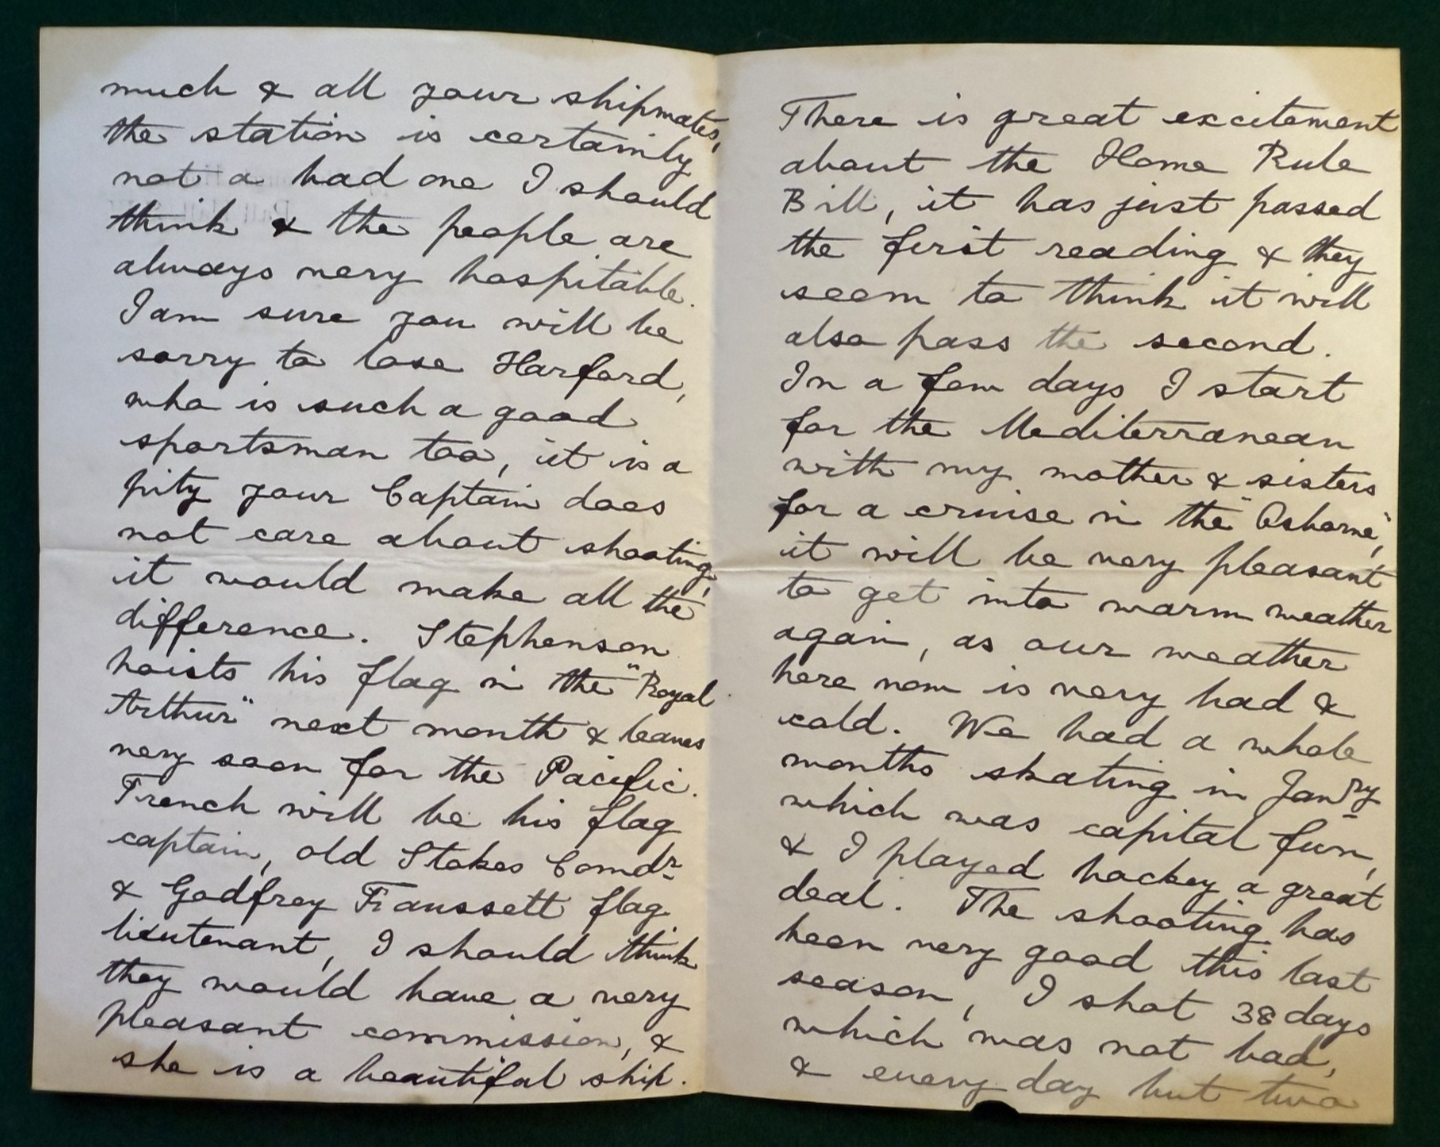 much & all your shipmates,
the station is certainly
not a bad one I should
think & the people are
always very hospitable.
I am sure you will be
sorry to lose Harford,
who is such a good
sportsman too, it is a
pity your Captain does
not care about shooting,
it would make all the
difference. Stephenson
hoists his flag in the "Royal
Arthur" next month & leaves
very soon for the Pacific.
French will be his flag
captain, old Stokes Comdr
& Godfrey Faussett flag
lieutenant, I should think
they would have a very
pleasant commission, &
she is a beautiful ship.
There is great excitement
about the Home Rule
Bill, it has just passed
the first reading & they
seem to think it will
also pass the second.
In a few days I start
for the Mediterranean
with my mother & sisters
for a cruise in the "Osborne",
it will be very pleasant
to get into warm weather
again, as our weather
here now is very bad &
cold. We had a whole
months skating in Janry
which was capital fun,
& I played hockey a great
deal. The shooting has
been very good this last
season, I shot 38 days
which was not bad,
& every day but two